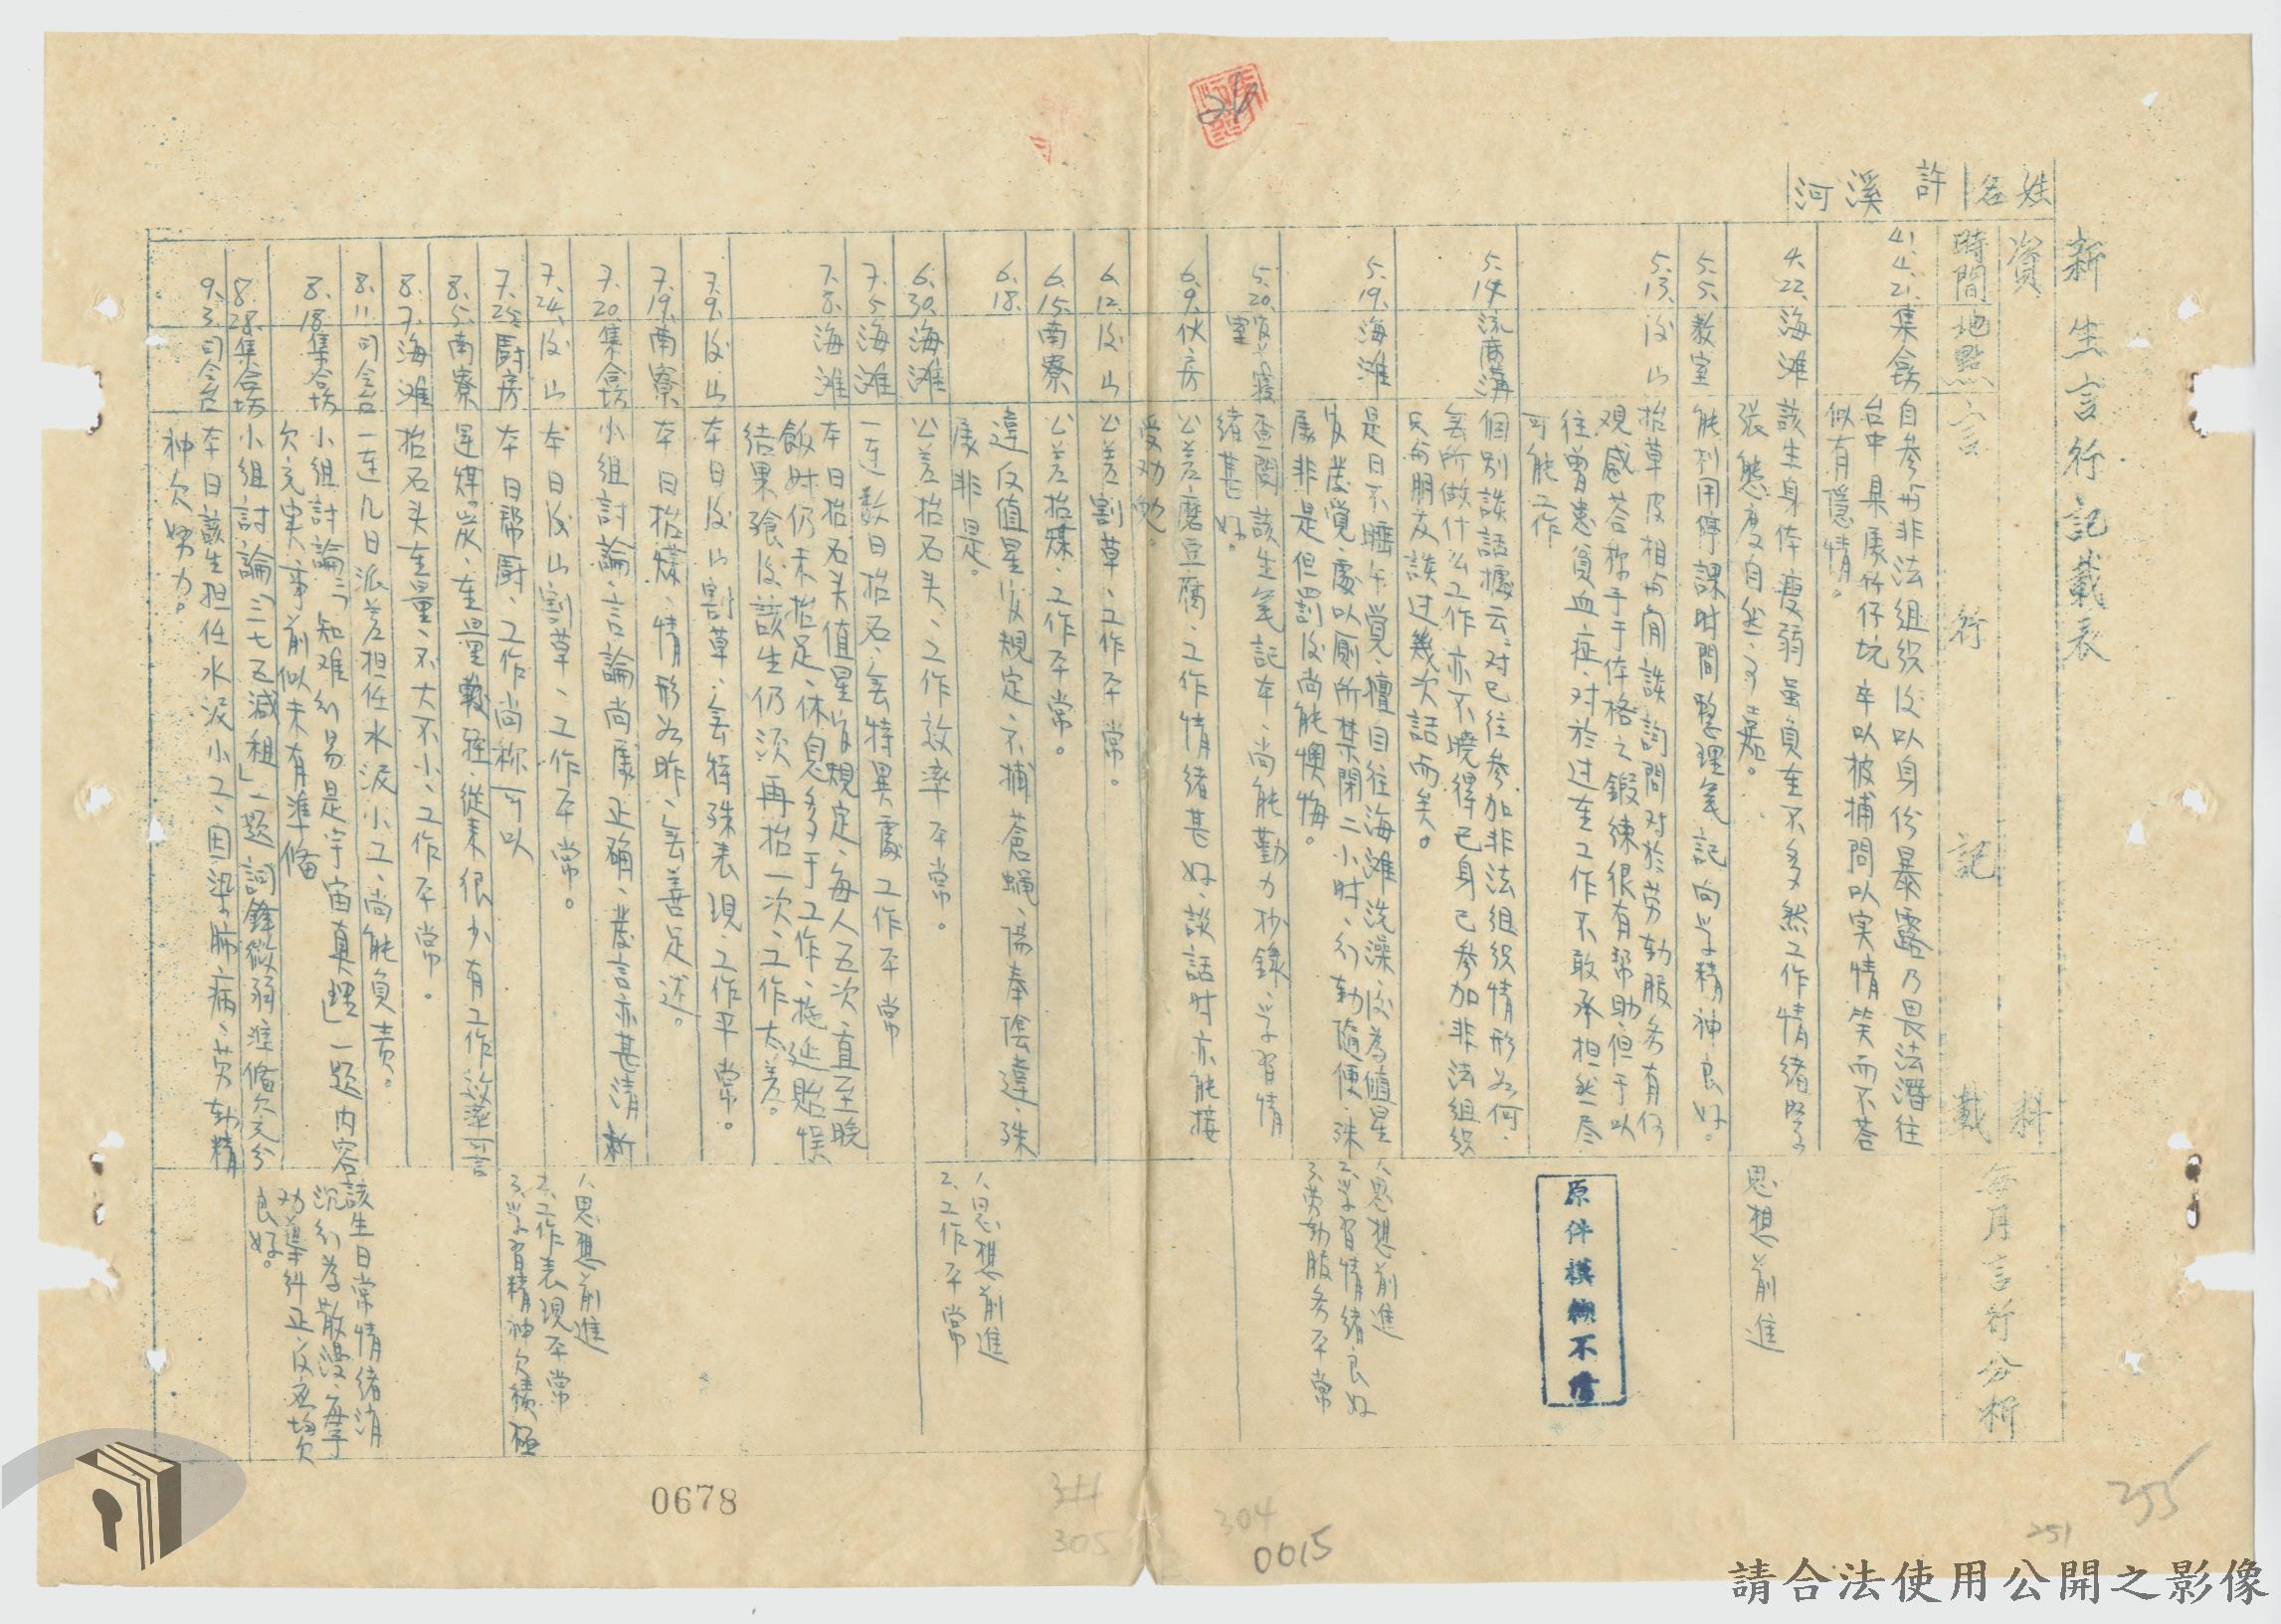 新生言行記載表
姓名
許溪河
資料
時間
地點
言行記載
每月言行分析
41.4.21.
集合場
自參加非法組織后以身份暴露乃畏法潛往
台中
仔仔坑
卒以被捕問以実情笑而不荅
似有隱情。
4.22.
海滩
該生身体瘦弱虽負重不多然工作情绪緊
張態度自然
思想前進
5.5.
教室
能利用停課时間整理笔記向学精神良好。
5.13.
后山
抬草皮相与闲談詢問对於劳动服务有何
观感荅称予于体格之鍛練很有帮助但于以
往曾患貧血症、对於过重工作不敢承担然尽
可能工作
5.14.
流麻溝
個别談話據云对已往參加非法組织情形为何.
毫所做什么工作亦不曉得己身已參加非法組织
只与朋友談过幾次話而矣。
5.19.
海滩
是日不睡午覚、擅自往海滩洗澡、后為值星
官發覚、處以厠所禁閉二小时、行动隨便、殊
属非是但罰后尚能懊悔。
1.思想前進
2.学習情绪良好
3.劳动服务平常
5.20.
寝室
查閱該生笔記本、尚能勤力抄錄、学習情
绪甚好。
6.9.
伙房
公差磨豆腐、工作情绪甚好、談話时亦能接
受劝勉。
6.12.
后山
公差割草、工作平常。
6.15.
南寮
公差抬煤、工作平常。
6.18.
違反值星官規定、不捕蒼蝇、陽奉陰違、殊
属非是。
1.思想前進
2.工作平常
6.30.
海滩
公差抬石头、工作效率平常。
7.5.
海滩
一連数日抬石、无特異處工作平常
7.8.
海滩
本日抬石头值星官規定、每人五次、直至晚
飯时仍未抬足、休息多于工作、拖延貽悞
结果飱后該生仍须再抬一次、工作太差。
7.9.
后山
本日后山割草、无特殊表現、工作平常。
7.19.
南寮
本日抬煤、情形为昨、无善足述。
7.20.
集合場
小组討論、言論尚属正确、發言亦甚清晰
1.思想前進
2.工作表現平常
3.学習精神欠積極
7.24.
后山
本日后山割草、工作平常。
7.25.
厨房
本日帮厨、工作尚称可以
8.5.
南寮
運煤炭、重量較輕、從来很少有工作效率可言
8.7.
海滩
抬石头重量、不大不小、工作平常。
8.11.
司令台
一連几日派差担任水泥小工、尚能負责。
8.18.
集合場
小组討論「知难行易是宇宙真理」一题内容
欠充実、事前似未有準俻
該生日常情绪消
沉、行為散漫、每予
劝導纠正、反应均欠
良好。
8.28.
集合場
小组討論「三七五減租」一题詞鋒微弱准俻欠充分
9.3.
司令台
本日該生担任水泥小工、因染肺病、劳动精
神欠努力。
原件模糊不清
0678
305
304
0015
251
255
請合法使用公開之影像